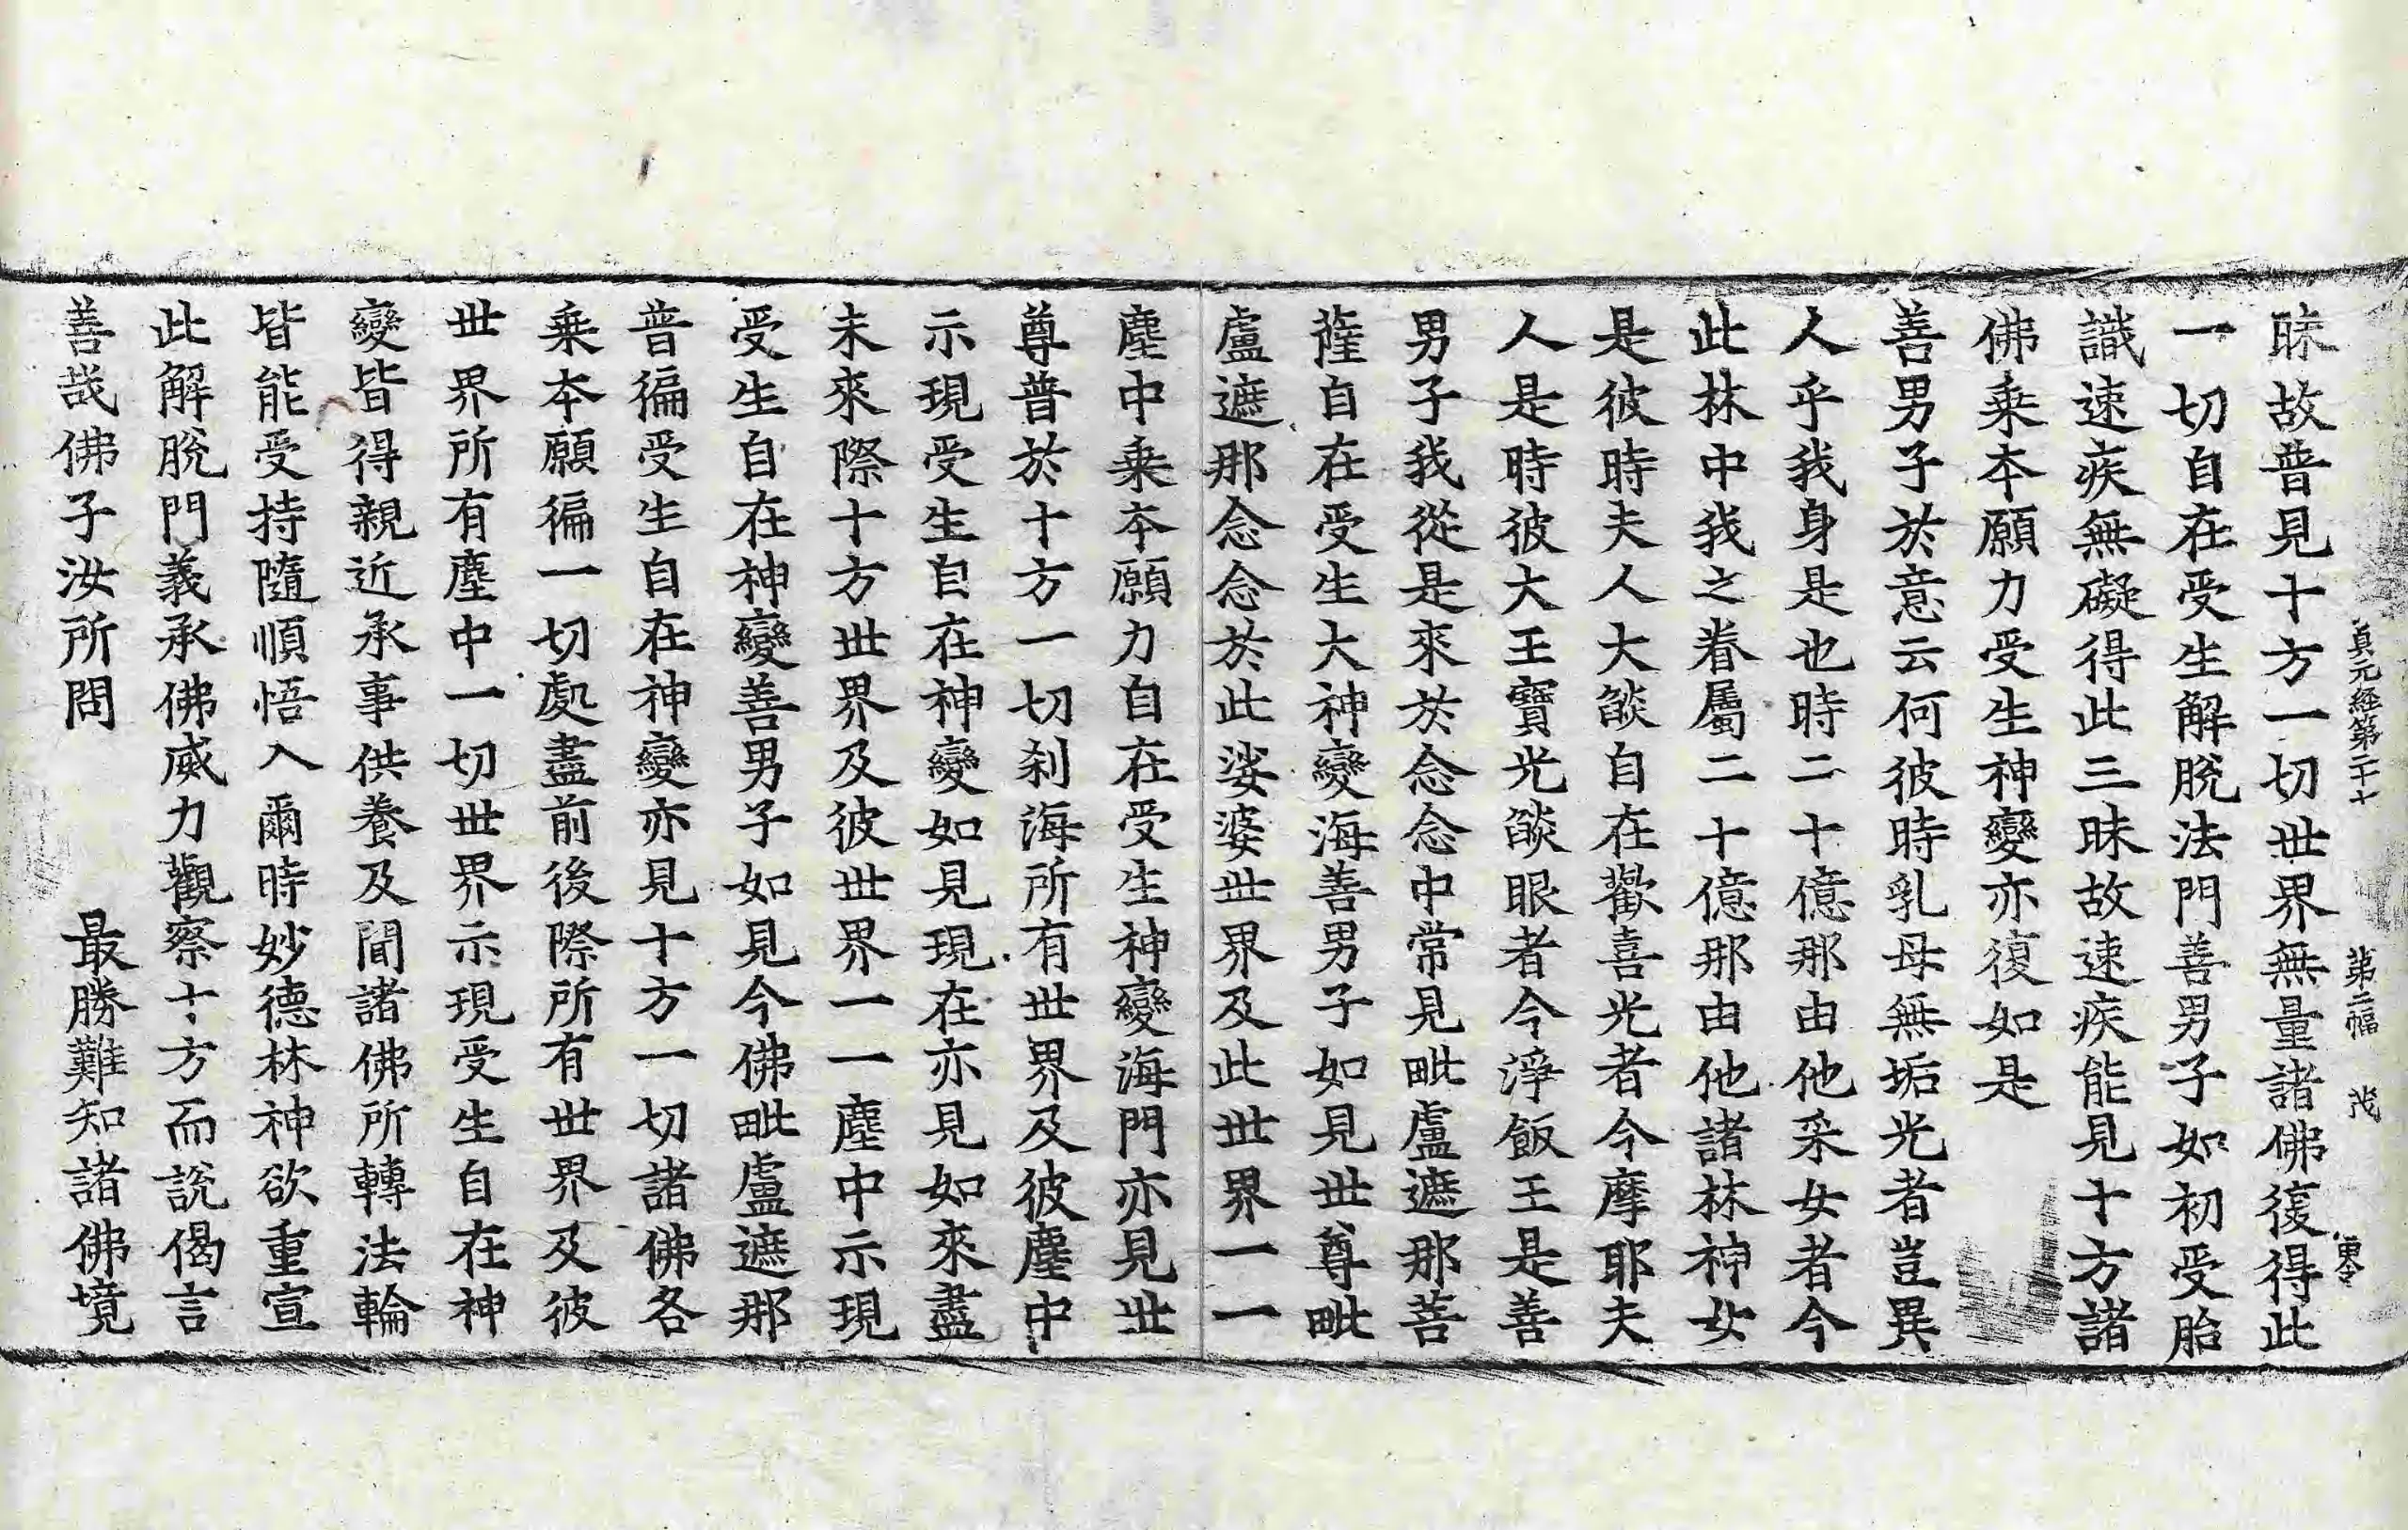 昧故普見十方一切世界無量諸佛復得此
真元経第二十七 第二幅 茂
一切自在受生解脫法門善男子如初受胎
識速疾無礙得此三昧故速疾能見十方諸
佛乗本願力受生神變亦復如是
善男子於意云何彼時乳母無垢光者豈異
人乎我身是也時二十億那由他采女者今
此林中我之眷屬二十億那由他諸林神女
是彼時夫人大燄自在歡喜光者今摩耶夫
人是時彼大王寶光燄眼者今淨飯王是善
男子我從是來於念念中常見毗盧遮那菩
薩自在受生大神變海善男子如見世尊毗
盧遮那念念於此娑婆世界及此世界一一
塵中乗本願力自在受生神變海門亦見世
尊普於十方一切刹海所有世界及彼塵中
示現受生自在神變如見現在亦見如來盡
未來際十方世界及彼世界一一塵中示現
受生自在神變善男子如見今佛毗盧遮那
普徧受生自在神變亦見十方一切諸佛各
乗本願徧一切處盡前後際所有世界及彼
世界所有塵中一切世界示現受生自在神
變皆得親近承事供養及聞諸佛所轉法輪
皆能受持隨順悟入爾時妙德林神欲重宣
此解脫門義承佛威力觀察十方而說偈言
善哉佛子汝所問 最勝難知諸佛境